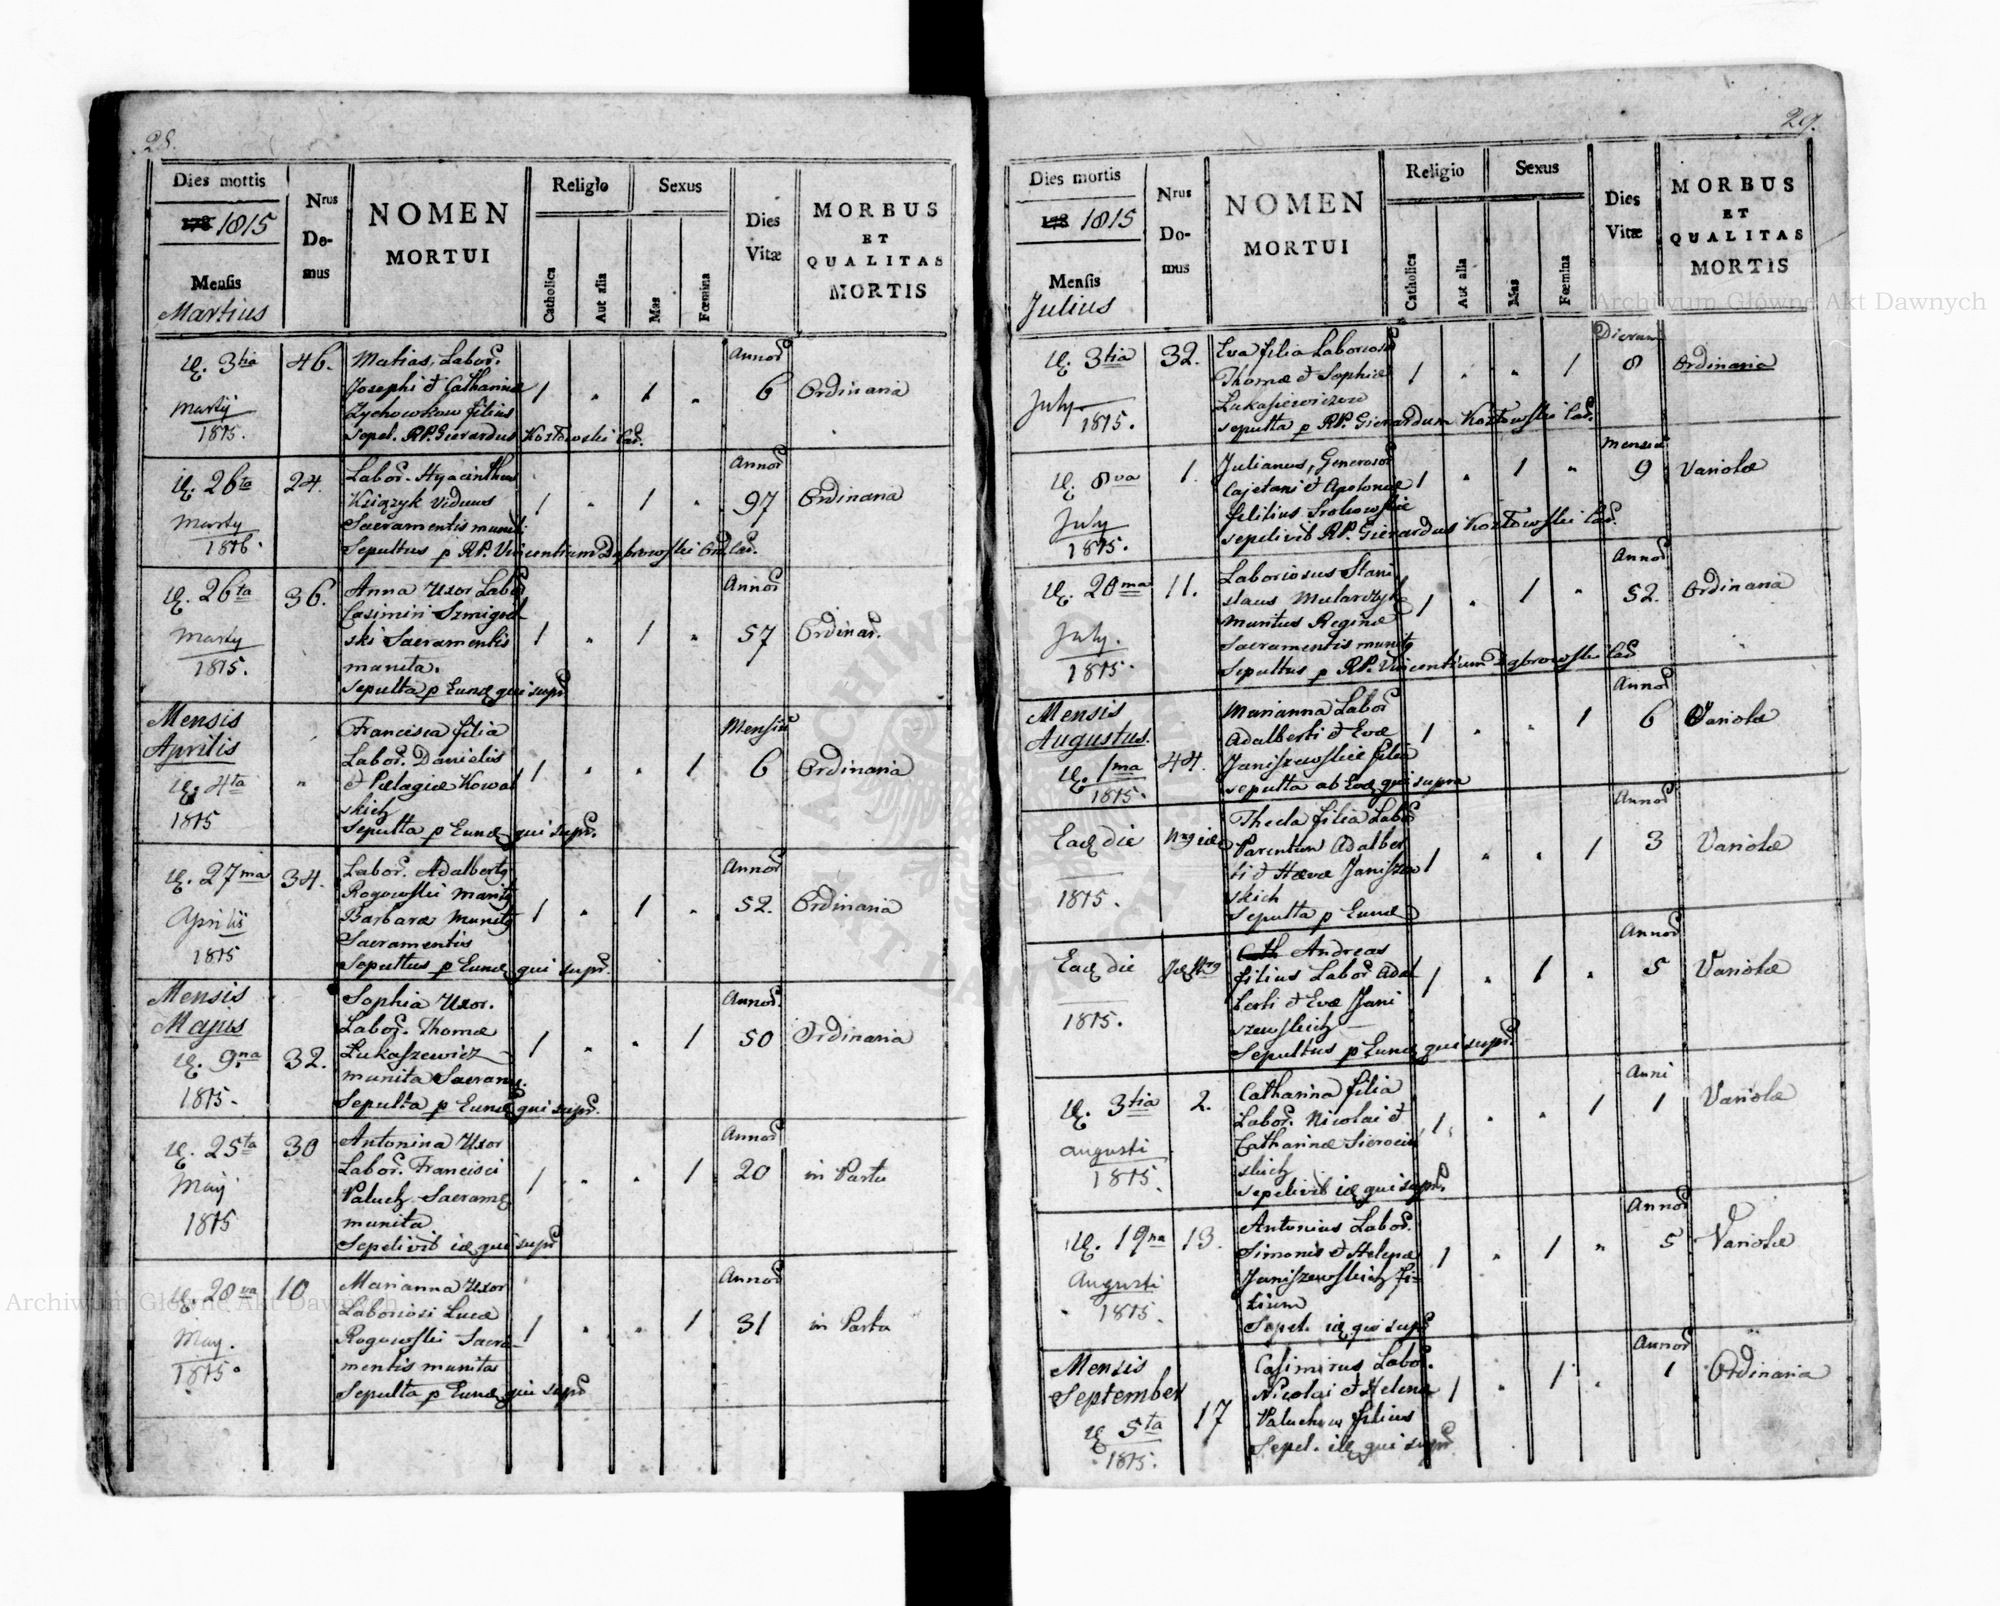 28.
Dies mortis
178 1815
Mensis
Martius
Nrus
Do-
mus
NOMEN
MORTUI
Religio
Catholica
Aut alia
Sexus
Mas
Fœmina
Dies
Vitæ
MORBUS
ET
QUALITAS
MORTIS
3tia
Martij
1815.
46.
Matias, Labor.
Josephi et Catharinæ
Zychowkow filius
sepel. RP. Gierardus Kozłowski Car.
1 " 1 "
Annor
6
Ordinaria
26ta
Marty
1816.
24.
Labor. Hyacinthus
Księżyk Viduus
Sacramentis munit:
Sepultus p RP. Vincentium Dąbrowski Ord. Car.
1 " 1 "
Annor
97
Ordinaria
26ta
Marty
1815.
36.
Anna Uxor Labor
Casimiri Szmigiel
ski Sacramentis
munita.
sepulta p Eund qui supr
1 " 1 "
Annor
57
Ordinar.
Mensis
Aprilis
4ta
1815
"
Francisca filia
Labor. Danielis
et Pelagiæ Kowal
skich
Sepulta p Eund qui supr.
1 " " 1
Mensiu
6
Ordinaria
27ma
Aprilis
1815
34.
Labor. Adalbertg
Rogowski Maritg
Barbaræ munitg
Sacramentis
Sepultus p Eund qui supr.
1 " 1 "
Annor
52.
Ordinaria
Mensis
Majus
9na
1815.
32.
Sophia Uxor.
Labor. Thomæ
Lukaszewicz
munita Sacram
Sepulta p Eund qui supr.
1 " " 1
Annor.
50
Ordinaria
25ta
May
1815
30
Antonina Uxor
Labor. Francisci
Paluch Sacrame
munita
Sepelivit id qui supr
1 " " 1
Annor
20
in Partu
20va
May.
1815.
10
Marianna Uxor
Laboriosi Lucæ
Rogowski Sacra-
mentis munita
Sepulta p Eund qui supr
1 " " 1
Annor
31
in Partu
29.
Dies mortis
178 1815
Mensis
Julius
Nrus
Do-
mus
NOMEN
MORTUI
Religio
Catholica
Aut alia
Sexus
Mas
Fœmina
Dies
Vitæ
MORBUS
ET
QUALITAS
MORTIS
3tia
July
1815.
32.
Eva filia Laborioso
Thomæ et Sophiæ
Lukasiewiczow
sepulta p RP. Gierardum Kozłowski Car.
1 " " 1
Dierum
8
Ordinaria
8va
July
1815.
1.
Julianus, Generosor
Cajetani et Apoloniæ
filius
sepelivit RP. Gierardus Kozłowski Car.
1 " 1 "
Mensiu
9
Variolæ
20ma
July.
1815.
11.
Laboriosus Stani
slaus Mularczyk
Maritus Reginæ
Sacramentis munitg
Sepultus p RP. Vincentium Dąbrowski Car
1 " 1 "
Annor
52.
Ordinaria
Mensis
Augustus.
1ma
1815.
44.
Marianna Labor
Adalberti et Evæ
Janiszewskie filia
sepulta ab Eod qui supra
1 " " 1
Annor
6
Variolæ
Ead die
1815.
Thecla filia Labor
Parentum Adalber
ti et Hævæ Janiszew
skich
Sepulta p Eund
1 " " 1
Annor
3
Variolæ
Ead die
1815.
Cath Andreas
filius Labor Adal
berti et Evæ Jani
szewskich
Sepultus p Eund qui supr.
1 " 1 "
Annor
5
Variolæ
3tia
augusti
1815.
2.
Catharina filia
Labor. Nicolai et
Catharinæ Sierocin
skich
sepelivit id qui supr.
1 " " 1
Anni
1
Variolæ
19na
Augusti
1815.
13.
Antonius Labor.
Simonis et Helenæ
Janiszewskich fi-
lium
Sepel. id qui supr
1 " 1 "
Annor
5
Variolæ
Mensis
September
5ta
1815.
17
Casimirus Labor.
Nicolai et Helenæ
Paluchow filius
Sepel. id qui supr
1 " 1 "
Annor
1
Ordinaria
Archiwum Główne Akt Dawnych
Archiwum Główne Akt Dawnych